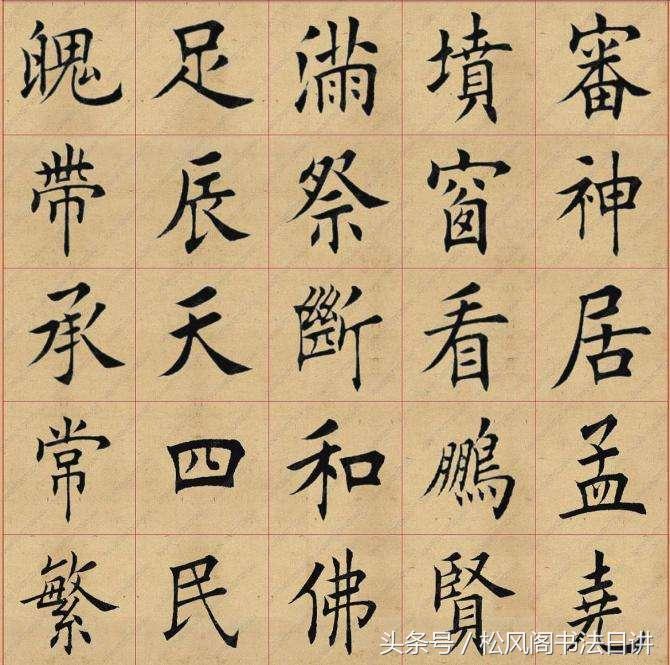 魄足滿墳審
帶辰祭窗神
承天斷看居
常四和鵬孟
繁民佛賢堯
头条号／松风阁书法日讲